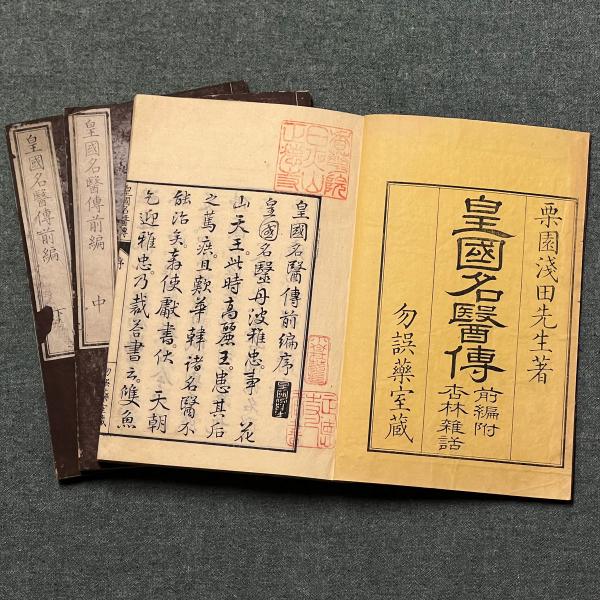 栗園淺田先生著
皇國名醫傳
前編附
杏林雜話
勿誤藥室蔵
皇國名醫傳前編序
皇國名毉丹波雅忠。事 花
山天王。此時高麗王。患其后
之篤疾。且歎華韓諸名醫不
能治矣。使獻書伏 天朝
乞迎雅忠乃裁答書云。雙魚
皇國名醫傳 序
皇國名醫傳前編 中
皇國名醫傳前編 下